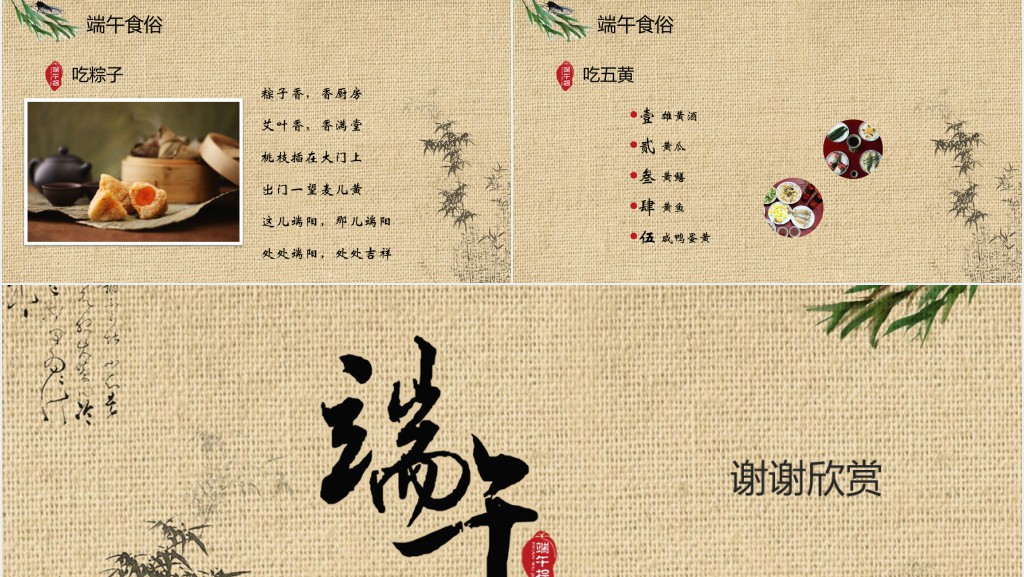 端午食俗
吃粽子
粽子香，香厨房
艾叶香，香满堂
桃枝插在大门上
出门一望麦儿黄
这儿端阳，那儿端阳
处处端阳，处处吉祥
端午食俗
吃五黄
壹 雄黄酒
贰 黄瓜
叁 黄鳝
肆 黄鱼
伍 咸鸭蛋黄
端午
谢谢欣赏